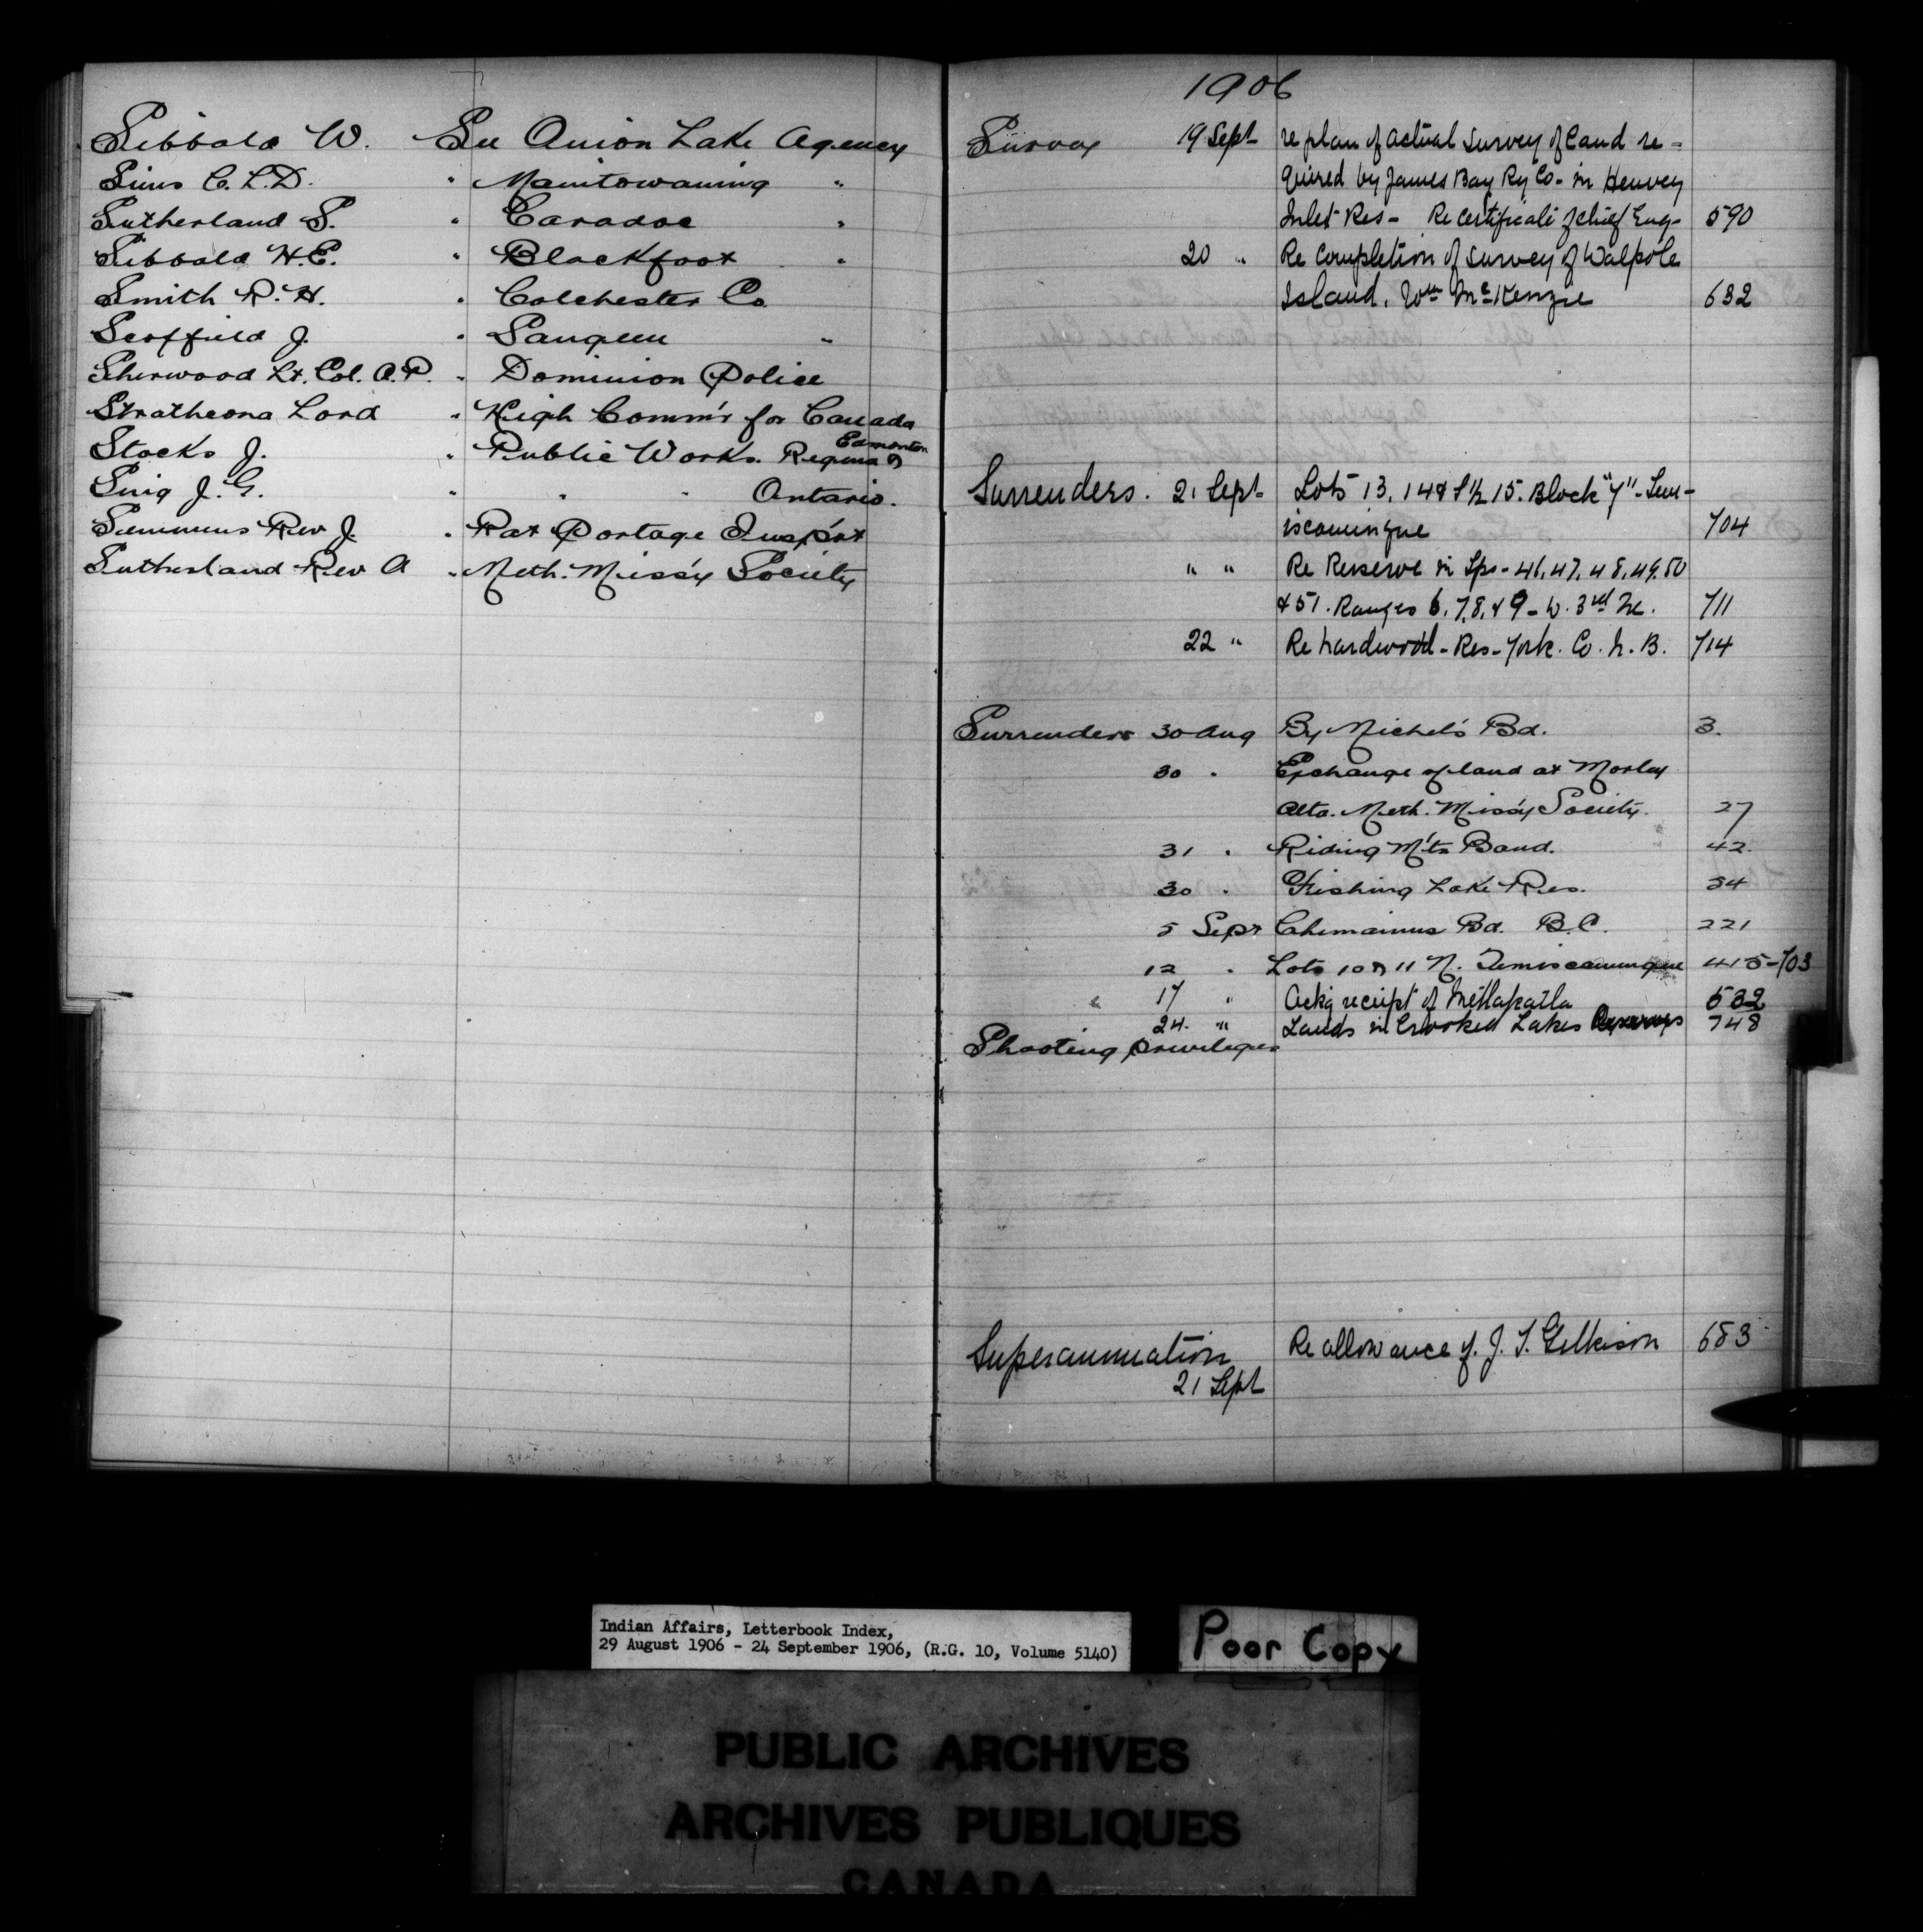 Sibbald W. See Onion Lake Agency
Sims C.L.D. " Manitowaning "
Sutherland S. " Caradoc "
Sibbald H.E. " Blackfoot "
Smith R.H. " Colchester Co.
Scoffield J. " Saugeen "
Sherwood Lt. Col. A.P. " Dominion Police
Strathcona Lord " High Comm'r for Canada
Edmonton
Stocks J. " Public Works. Regina &
J.G. " " " Ontario.
Rev J. " Rat Portage Insp'rt
Sutherland Rev A " Meth. Miss'y Society
1906
Survey 19 Sept re plan of actual survey of land re-
quired by James Bay Ry Co- in Henvey
Inlet Res- Re certificate of chief Eng- 590
20 " Re completion of survey of Walpole
Island. Wm McKenzie 632
Surrenders. 21 Sept Lots 13, 14 & S½ 15. Block "Y" - Tem-
iscamingue 704
" " Re Reserve in Tps - 46, 47, 48, 49, 50
& 51. Ranges 6, 7, 8, & 9 - W. 3rd M. 711
22 " Re hardwood - Res - York. Co. N. B. 714
Surrenders 30 Aug By Michel's Bd. 3.
30 " Exchange of land at Morley
Alta. Meth. Miss'y Society. 27
31 " Riding M'tn Band. 42
30 " Fishing Lake Res. 34
5 Sept Chemainus Bd. B.C. 221
12 " Lots 10 & 11 N. Temiscamingue 415-703
17 " Ackg receipt of Metlakatla 532
24. " Lands in Crooked Lakes Reserves 748
Shooting privileges
Superannuation Re allowance of J. T. Gilkison 683
21 Sept
Indian Affairs, Letterbook Index,
29 August 1906 - 24 September 1906, (R.G. 10, Volume 5140)
Poor Copy
PUBLIC ARCHIVES
ARCHIVES PUBLIQUES
CANADA